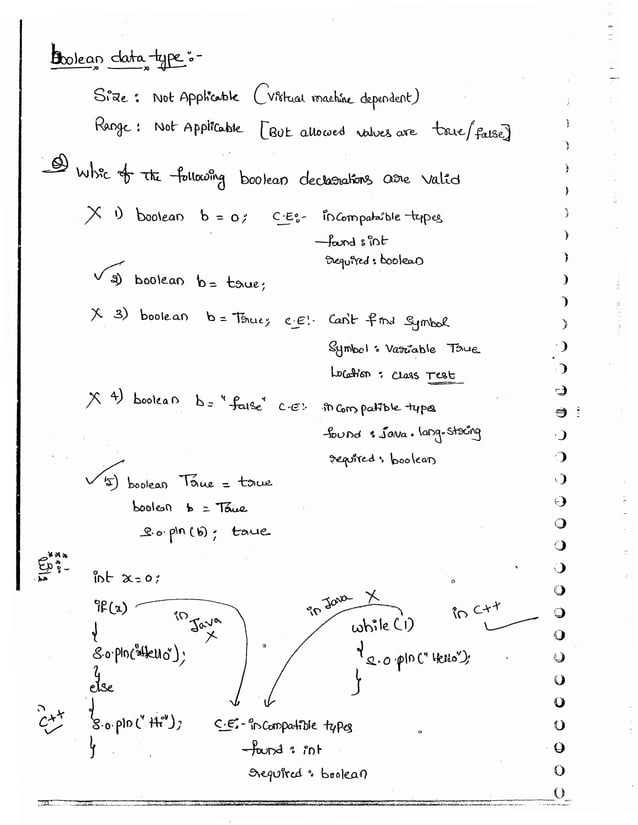 boolean data type:-
Size : Not Applicable (Virtual machine dependent)
Range : Not Applicable [But allowed values are true/false]
Q) Whic of the following boolean declarations are valid
X 1) boolean b = 0; C.E:- incompatible types
found : int
required : boolean
✓ 2) boolean b = true;
X 3) boolean b = True; C.E:- Can't find symbol
Symbol : Variable True
Location : class Test
X 4) boolean b = "false" C.E:- incompatible types
found : java.lang-string
required : boolean
✓ 5) boolean True = true
boolean b = True
S.o.pln(b); true
***
Ex:-
int x=0;
if(x)
{
S.o.pln("Hello");
}
else
{
S.o.pln("Hi");
}
C++ ✓
in Java X
in Java X
while(1)
{
S.o.pln("Hello");
}
in C++ ✓
C.E:- incompatible types
found : int
required : boolean